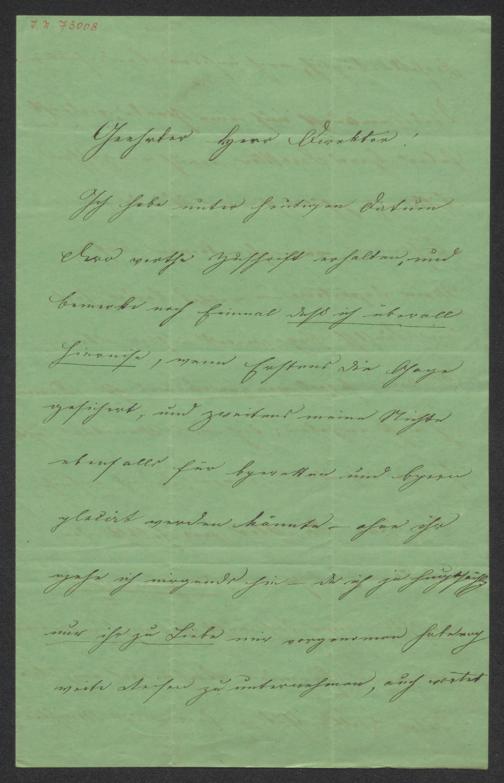 I. N 73008
Geehrter Herr Direktor!
Ich habe unter heutigen Datum
Dero werthe Zuschrift erhalten, und
bemerke noch Einmal daß ich überall
hinreise, wenn Erstens die Gage
gesichert, und zweitens meine Nichte
ebenfalls für Operetten und Opern
plaćirt werden könnte – ohne ihr
gehe ich nirgends hin – da ich ja hauptsächlich
nur ihr zu Liebe mir vorgenommen habe noch
weite Reisen zu unternehmen, auch